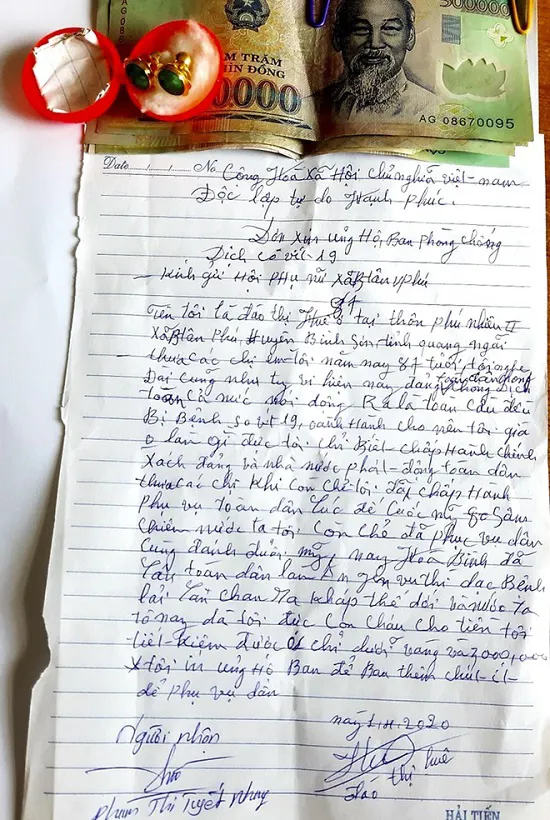 AG 086
500000
M TRĂM
HÌN ĐỒNG
0000
AG 08670095
Date No
Công Hoá xã Hội chủ nghĩa việt-nam
Độc lập tự do Hành phúc.
Đơn xin ủng Hộ, Ban phòng chống
Dịch cô vit 19
Kính gửi Hội PHụ nữ xã Btân phú
84
Tên tôi là đáo thị Huê ở tại thôn phú nhiên II
xã Btân phú, Huyện Bình Sơn tỉnh quang ngãi
thưa các chị em tôi năm nay 84 tuổi, tôi nghe
Đài cung như ty vi hiên nay đang chống Dịch
toàn dân phòng
cả nước nói dông Ra là toàn cầu đều
Bị Bệnh vit 19, oành Hành cho nên tôi già
ở làm gì đức tôi chỉ Biết chấp Hành chính
xách đảng và nhà nước phát động toàn dân
thưa các chị khi còn chẻ tôi đã chấp Hành
phụ vụ toàn dân lúc đế cuốc mỹ Sâm
chiêm nước ta tôi còn chẻ đã phục vụ dân
cung đánh đuổi mỹ nay Hoà Bình đã
lâu toàn dân làm ăn yên vui thì dạc Bệnh
lai lan chan Ra khắp thế dới và nước ta
tô nay đã tôi đức con cháu cho tiền tôi
tiết kiêm đước chỉ dưới vang và 3000,000
tôi in ủng Hộ Ban để Ban thêm chút ít
để phụ vụ dân
Người nhận
này 1, 4. 2020
Huê
đáo thị
phạm Thị Tuyết Nhung
HẢI TIẾN